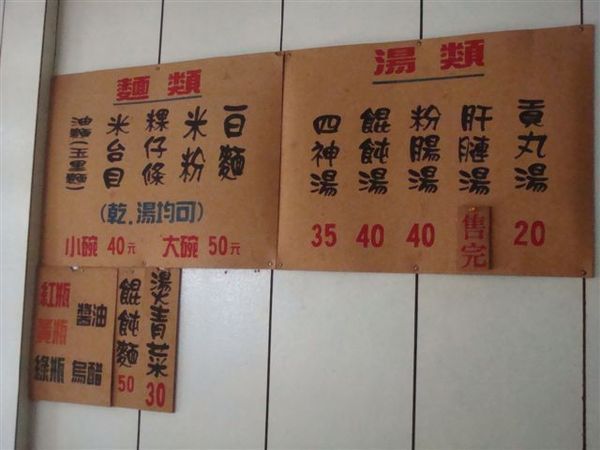 湯類
貢丸湯 20
肝腱湯 售完
粉腸湯 40
餛飩湯 40
四神湯 35
麵類
白麵
米粉
粿仔條
米台目
油麵(玉里麵)
(乾.湯均可)
小碗 40元 大碗 50元
燙青菜 30
餛飩麵 50
紅瓶
黃瓶 醬油
綠瓶 烏醋